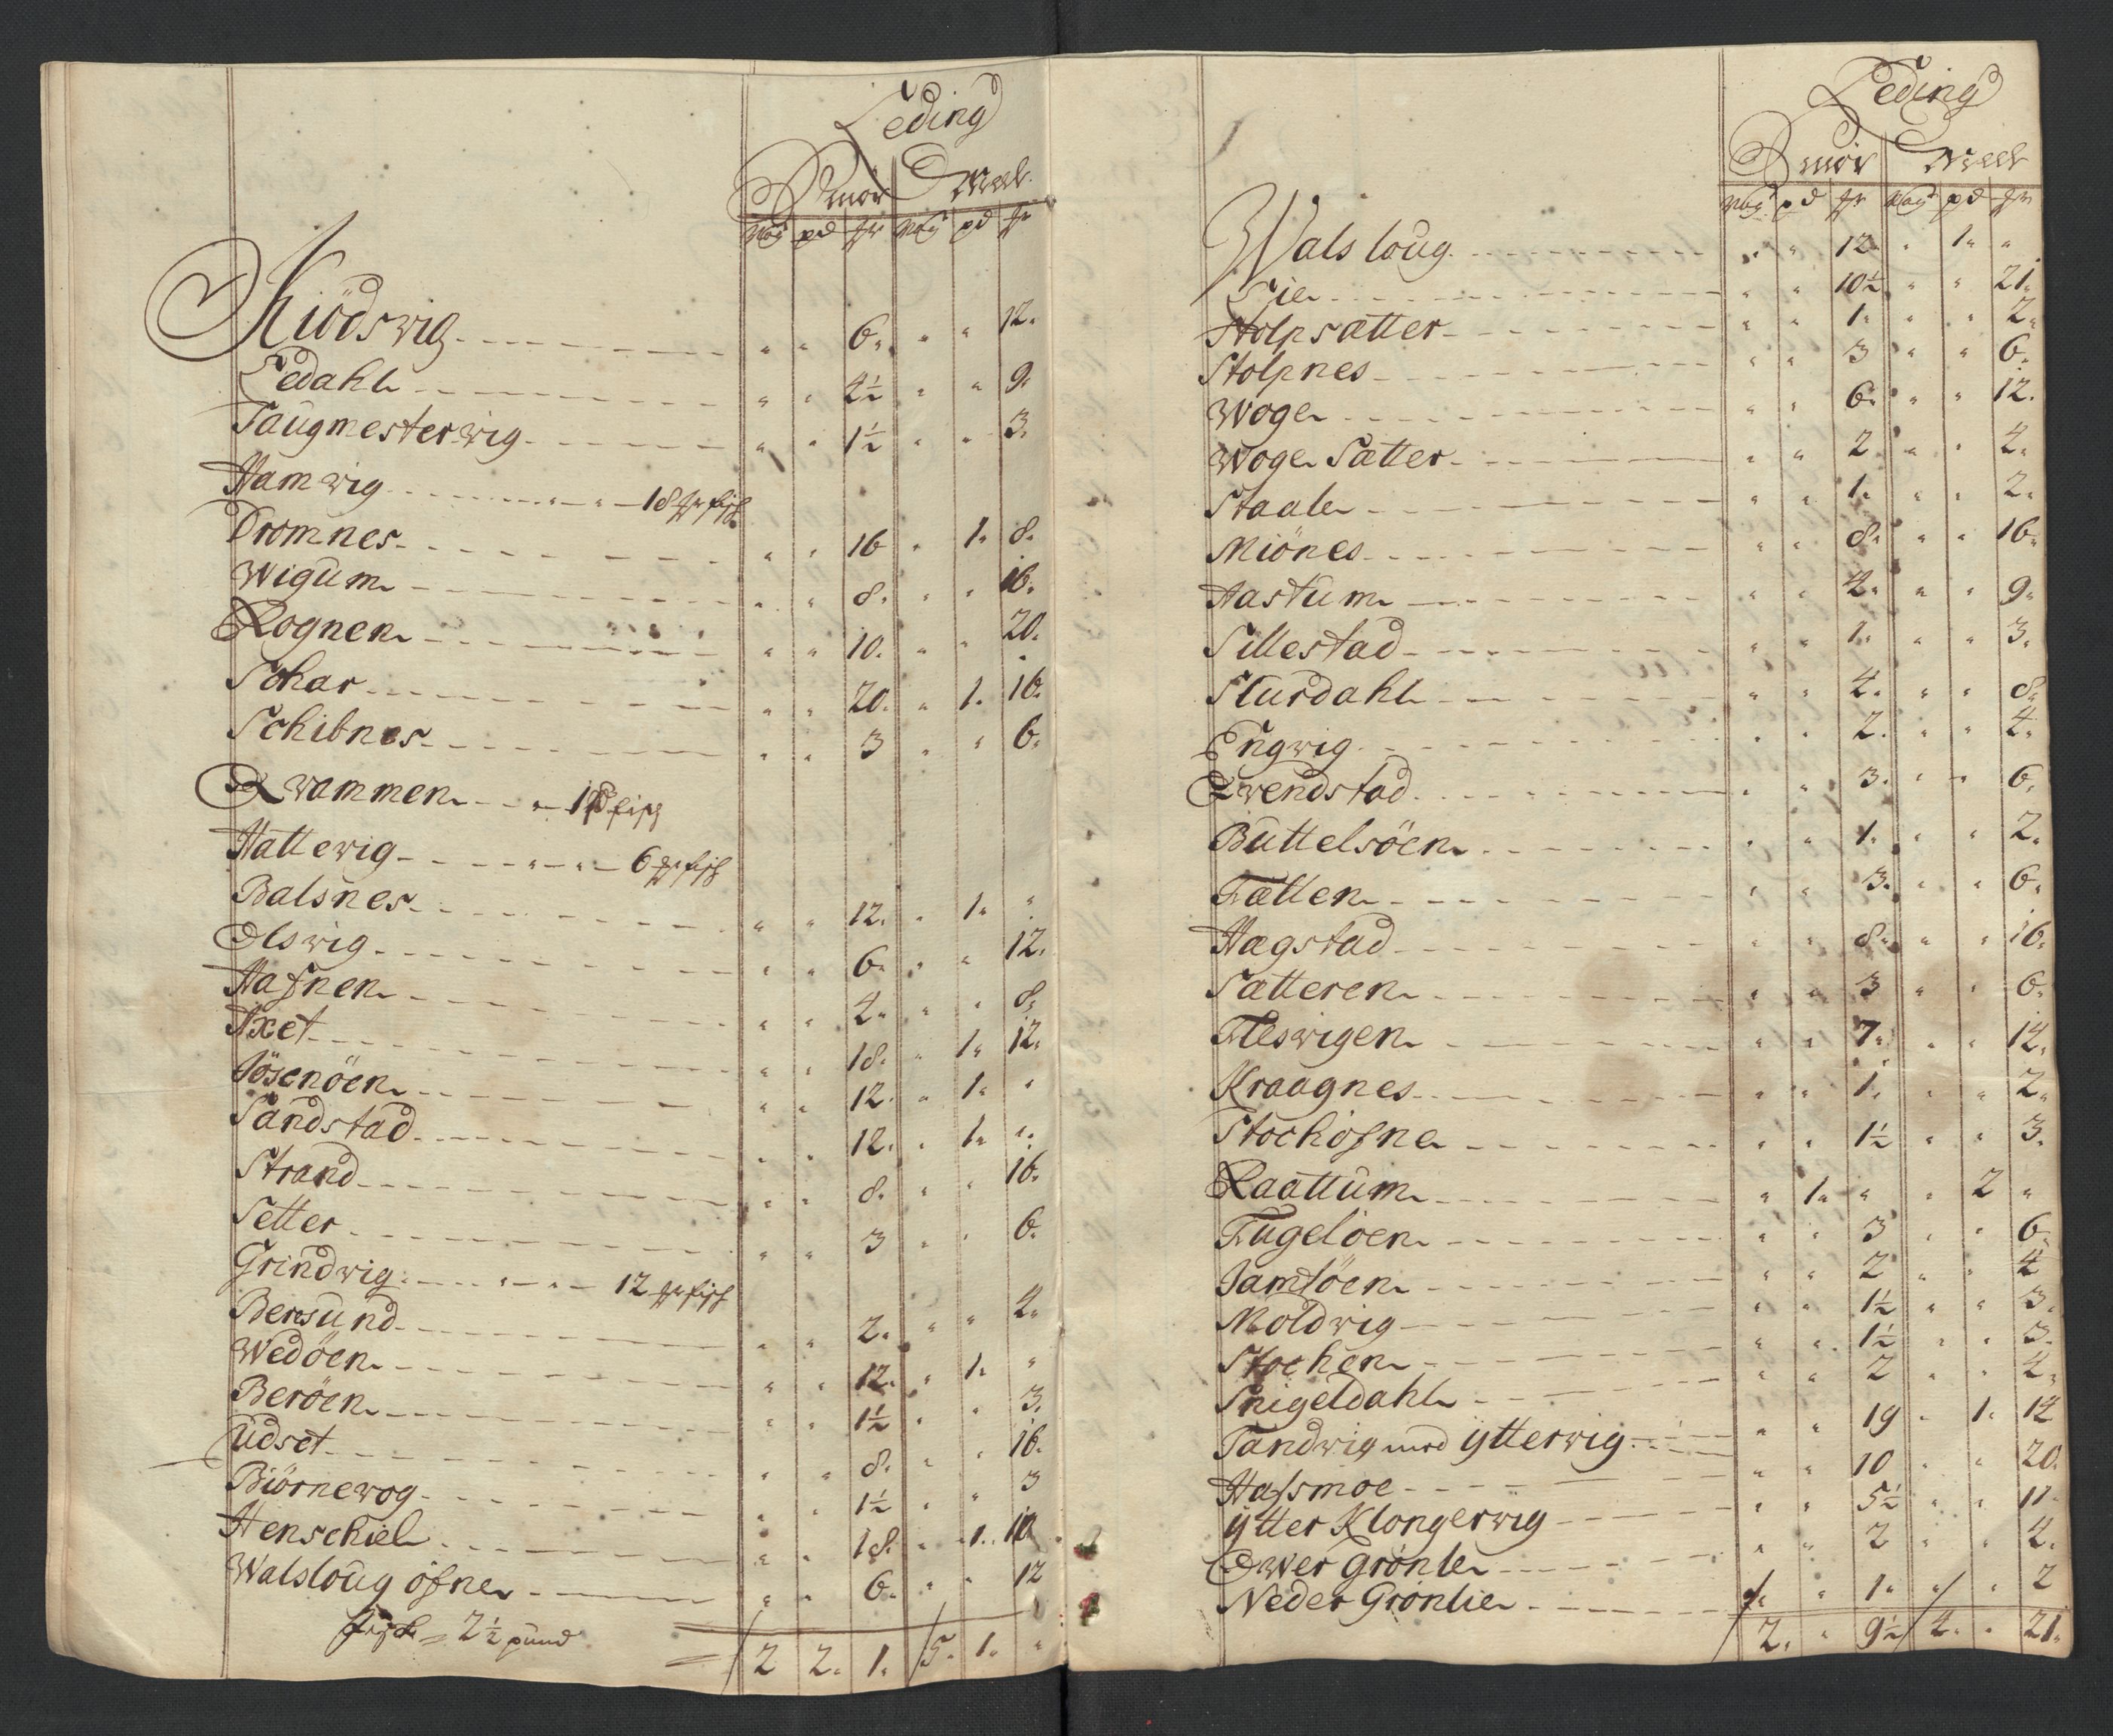 Leding
Smör Meel
Wog pd mk Wog pd mk
Kiödswig " " 6 " " 12
Ledahl " " 4½ " " 9
Taugmesterwig " " 1½ " " 3
Hamwig 18 mk fisk
Dromnes " " 16 " 1 8
Wigum " " 8 " " 16
Rognen " " 10 " " 20
Schar " " 20 " 1 16
Schibnes " " 3 " " 6
Qwammen 1 pd fisk
Hattewig 6 mk fisk
Balsnes " " 12 " 1 "
Olswig " " 6 " " 12
Hafnen " " 4 " " 8
Axet " " 18 " 1 12
Jösenöen " " 12 " 1 "
Sandstad " " 12 " 1 "
Strand " " 8 " " 16
Setter " " 3 " " 6
Grindwig 12 mk fisk
Bensund " " 2 " " 4
Wedöen " " 12 " 1 "
Beröen " " 1½ " " 3
Udset " " 8 " " 16
Biörnewog " " 1½ " " 3
Henschiel " " 18 " 1
Walsloug öfne " " 6 " " 12
fisk = 2½ pund 2 2 1 5 1 "
Leding
Smör Meel
Wog pd mk Wog pd mk
Walsloug " " 12 " 1 "
Lie " " 10½ " " 21
Stolpsætter " " 1 " " 2
Stolpnes " " 3 " " 6
Woge " " 6 " " 12
Woge Sætter " " 2 " " 4
Staale " " 1 " " 2
Miönes " " 8 " " 16
Aastum " " 4 " " 9
Sillestad " " 1 " " 3
Slurdahl " " 4 " " 8
Engwig " " 2 " " 4
Qwendstad " " 3 " " 6
Buttelsöen " " 1 " " 2
Fætten " " 3 " " 6
Hagstad " " 8 " " 16
Sætteren " " 3 " " 6
Fleswigen " " 7 " " 14
Kraagnes " " 1 " " 2
Stochöfne " " 1½ " " 3
Raattum " 1 " " 2 "
Fugelöen " " 3 " " 6
Jamtöen " " 2 " " 4
Moldwig " " 1½ " " 3
Stochen " " 1½ " " 3
Snigeldahl " " 2 " " 4
Tandwig med ytterwig " " 19 " 1 14
Hassmoe " " 10 " " 20
ytter Klongerwig " " 5½ " " 11
Ower Grönle " " 2 " " 4
Neder Grönlie " " 1 " " 2
2 " 9½ 4 " 21